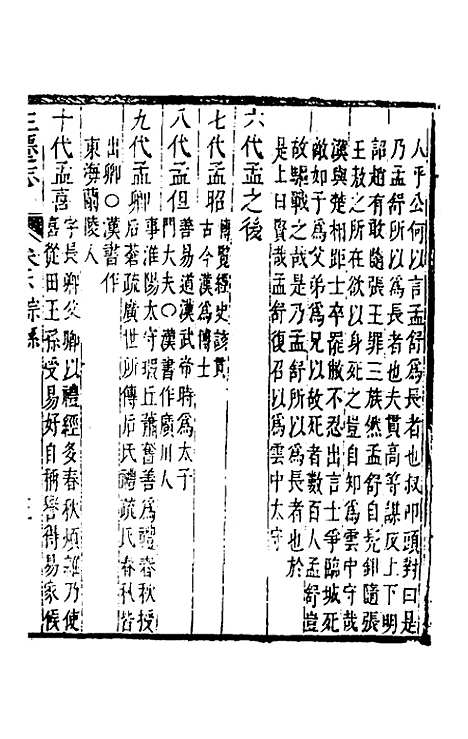 人乎公何以言孟舒為長者也叔叩頭對曰是
乃孟舒所以為長者也夫貫高等謀反上下明
詔趙有敢隨張王罪三族然孟舒自髡鉗隨張
王敖之所在欲以身死之豈自知為雲中守哉
漢與楚相距士卒罷敝不忍出言士爭臨城死
敵如子為父弟為兄以故死者數百人孟舒豈
故驅戰之哉是乃孟舒所以為長者也於
是上曰賢哉孟舒復召以為雲中太守
六代孟之後
七代孟昭
博覽經史該貫
古今漢為博士
八代孟但
善易道漢武帝時為太子
門大夫○漢書作廣川人
九代孟卿
事淮陽太守瑕丘蕭奮善為禮春秋授
后蒼疏廣世所傳后氏禮疏氏春秋皆
出卿○漢書作
東海蘭陵人
十代孟喜
字長卿父卿以禮經多春秋煩雜乃使
喜從田王孫受易好自稱譽得易家候
三遷志
卷六 宗系
三